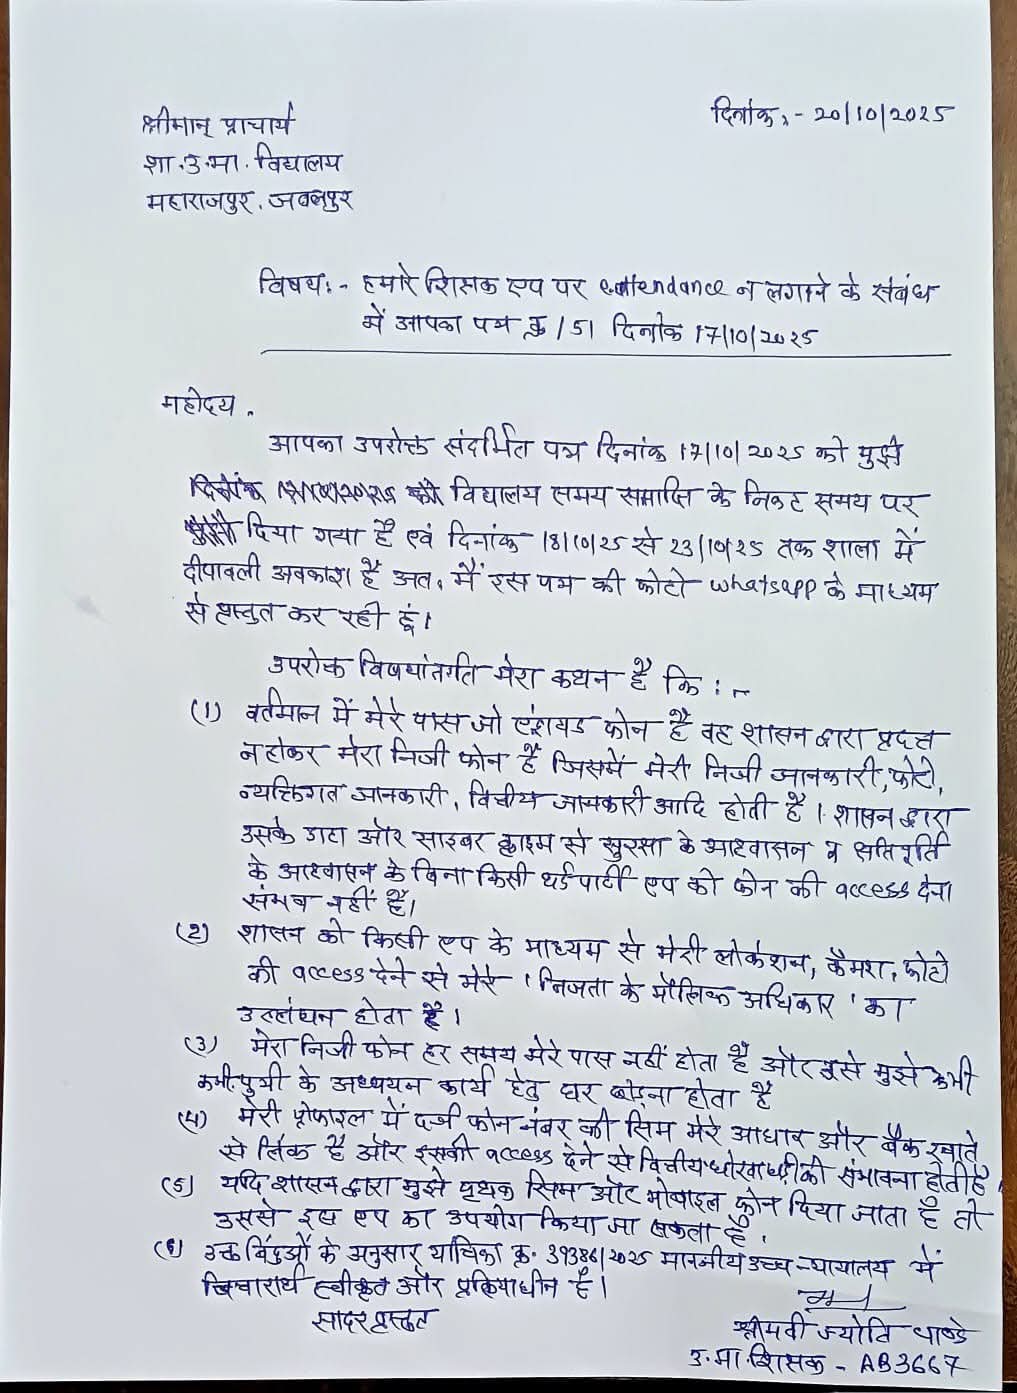 दिनांक:- 20/10/2025
श्रीमान् प्राचार्य
शा.उ.मा. विद्यालय
महाराजपुर, जबलपुर
विषय:- हमारे शिक्षक एप पर eattendance न लगाने के संबंध
में आपका पत्र क्र 151 दिनांक 17/10/2025
महोदय,
आपका उपरोक्त संदर्भित पत्र दिनांक 17/10/2025 को मुझे
विद्यालय समय समाप्ति के निकट समय पर
दिया गया है एवं दिनांक 18/10/25 से 23/10/25 तक शाला में
दीपावली अवकाश है अत, मैं इस पत्र की फोटो whatsapp के माध्यम
से प्रस्तुत कर रही हूं।
उपरोक्त विषयांतर्गत मेरा कथन है कि :-
(1) वर्तमान में मेरे पास जो एंड्रायड फोन है वह शासन द्वारा प्रदत्त
न होकर मेरा निजी फोन है जिसमें मेरी निजी जानकारी, फोटो,
व्यक्तिगत जानकारी, वित्तीय जानकारी आदि होती है। शासन द्वारा
उसके डाटा और साइबर क्राइम से सुरक्षा के आश्वासन व क्षतिपूर्ति
के आश्वासन के बिना किसी थर्ड पार्टी एप को फोन की access देना
संभव नहीं है।
(2) शासन को किसी एप के माध्यम से मेरी लोकेशन, कैमरा, फोटो
की access देने से मेरे 'निजता के मौलिक अधिकार' का
उल्लंघन होता है।
(3) मेरा निजी फोन हर समय मेरे पास नहीं होता है और इसे मुझे कभी
कभी पुत्री के अध्ययन कार्य हेतु घर छोड़ना होता है
(4) मेरी प्रोफाइल में दर्ज फोन नंबर की सिम मेरे आधार और बैंक खाते
से लिंक है और इसकी access देने से वित्तीय धोखाधड़ी की संभावना होती है।
(5) यदि शासन द्वारा मुझे पृथक सिम और मोबाइल फोन दिया जाता है तो
उससे इस एप का उपयोग किया जा सकता है।
(6) उक्त बिंदुओं के अनुसार याचिका क्र. 39386/2025 माननीय उच्च न्यायालय में
विचारार्थ स्वीकृत और प्रक्रियाधीन है।
सादर प्रस्तुत
श्रीमती ज्योति पाण्डे
उ.मा.शिक्षक - AB3667